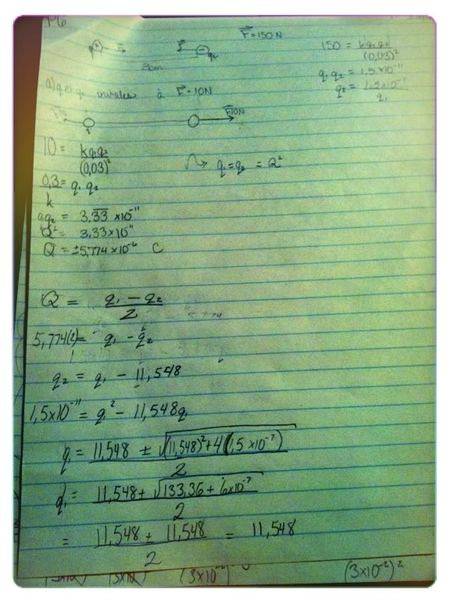 F=150N
150 = kq₁q₂
(0,03)²
q₁q₂ = 1,5×10⁻¹¹
q₂ = 1,5×10⁻¹¹
q₁
3cm
à F=10N
F=10N
10 = kq₁q₂
(0,03)²
q₁=q₂ = Q²
0,3 = q₁ q₂
k
q₁q₂ = 3,33 ×10⁻¹¹
Q² = 3,33×10⁻¹¹
Q = ±5,774×10⁻⁶ C
Q = q₁ - q₂
2
5,774(2) = q₁ - q₂
q₂ = q₁ - 11,548
1,5×10⁻¹¹ = q² - 11,548q₁
q₁ = 11,548 ± √(11,548)²+4(1,5×10⁻⁷)
2
q₁ = 11,548 + √133,36 + 6×10⁻⁷
2
= 11,548 ± 11,548 = 11,548
2
(3×10⁻²)²